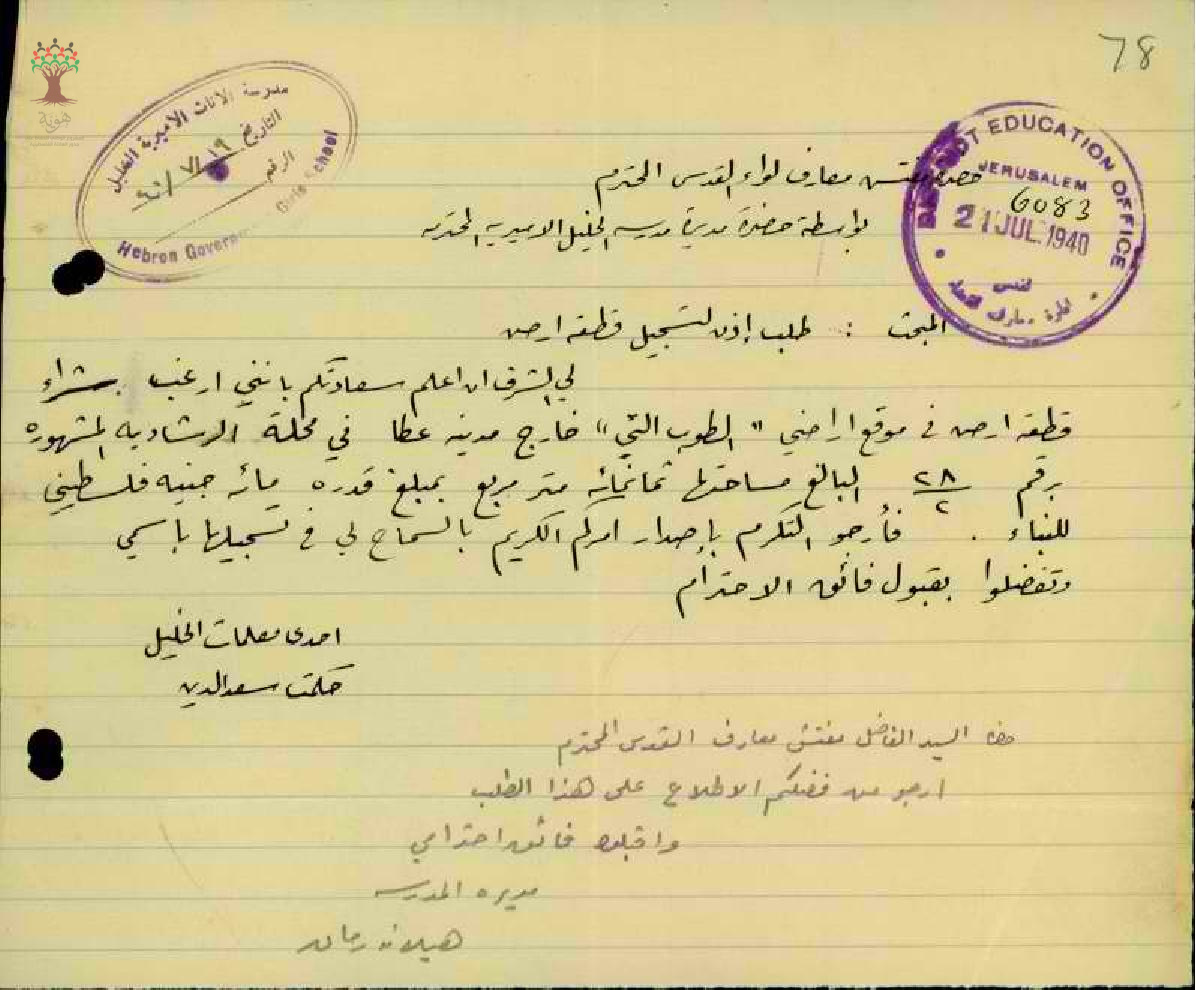 78
مدرسة الاناث الاميرية الخليل
التاريخ ١٩/٧/٤٠
الرقم
Hebron Government Girls School
DISTRICT EDUCATION OFFICE
JERUSALEM
6083
21 JUL 1940
ادارة معارف القدس
حضرة مفتش معارف لواء القدس المحترم
بواسطة حضرة مديرة مدرسه الخليل الاميريه المحترمه
المبحث : طلب إذن لتسجيل قطعه ارض
لي الشرف ان اعلم سعادتكم بانني ارغب بشراء
قطعه ارض في موقع اراضي " الطوب التي " خارج مدينه في محلة الرشاديه المشهوره
برقم ٢٨/٢ البالغ مساحتها ثمانمائه متر مربع بمبلغ قدره مائه جنيه فلسطيني
للبناء . فأرجو التكرم بإصدار امركم الكريم بالسماح لي في تسجيلها باسمي
وتفضلوا بقبول فائق الاحترام
احدى معلمات الخليل
حكمت سعد الدين
حضرة السيد الفاضل مفتش معارف القدس المحترم
ارجو من فضلكم الاطلاع على هذا الطلب
واقبلوا فائق احترامي
مديره المدرسه